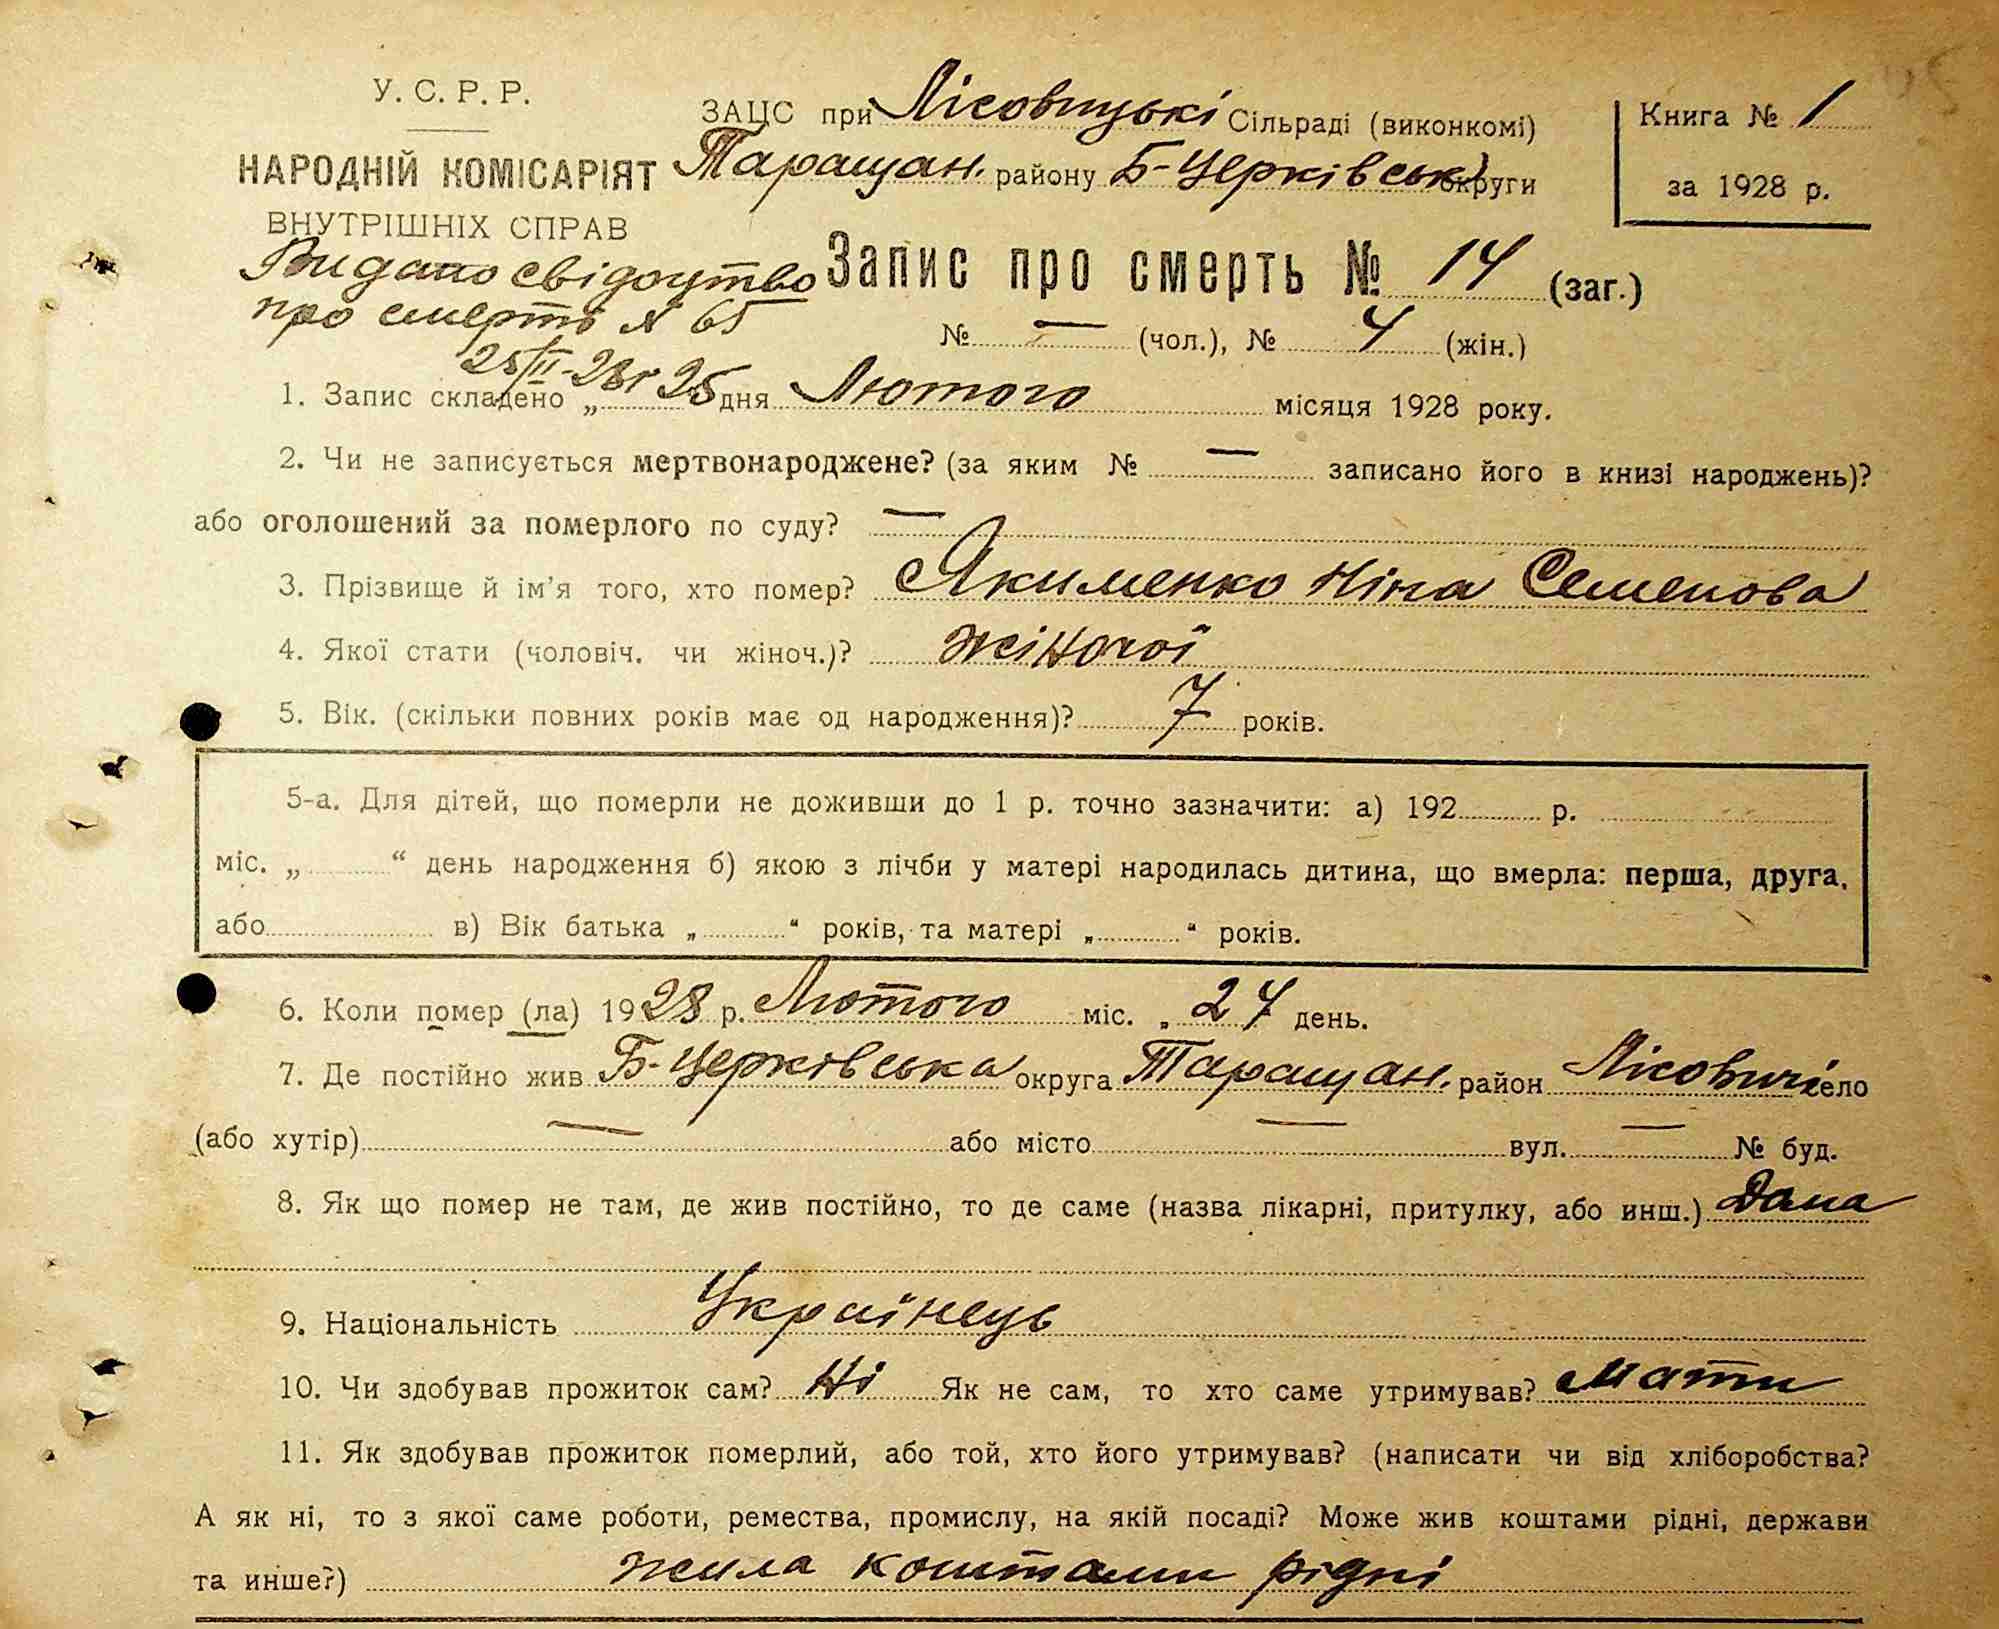 У. С. Р. Р.
НАРОДНІЙ КОМІСАРІЯТ
ВНУТРІШНІХ СПРАВ
ЗАЦС при Лісовицькі Сільраді (виконкомі)
Таращан. району Б-Церківськ округи
Книга № 1
за 1928 р.
Видано свідоцтво
про смерть № 65
25/II-28г
Запис про смерть № 14 (заг.)
№ — (чол.), № 4 (жін.)
1. Запис складено „ 25 дня Лютого місяця 1928 року.
2. Чи не записується мертвонароджене? (за яким № — записано його в книзі народжень)?
або оголошений за померлого по суду? —
3. Прізвище й ім'я того, хто помер? Якименко Ніна Семенова
4. Якої стати (чоловіч. чи жіноч.)? жіночої
5. Вік. (скільки повних років має од народження)? 7 років.
5-а. Для дітей, що померли не доживши до 1 р. точно зазначити: а) 192 р.
міс. „ “ день народження б) якою з лічби у матері народилась дитина, що вмерла: перша, друга,
або в) Вік батька „ “ років, та матері „ “ років.
6. Коли помер (ла) 1928 р. Лютого міс. „ 24 день.
7. Де постійно жив Б-Церківська округа Таращан. район Лісовичі село
(або хутір) — або місто — вул. — № буд.
8. Як що помер не там, де жив постійно, то де саме (назва лікарні, притулку, або инш.) Дома
9. Національність Українець
10. Чи здобував прожиток сам? Ні Як не сам, то хто саме утримував? Мати
11. Як здобував прожиток померлий, або той, хто його утримував? (написати чи від хліборобства?
А як ні, то з якої саме роботи, ремества, промислу, на якій посаді? Може жив коштами рідні, держави
та инше?) жила коштами рідні